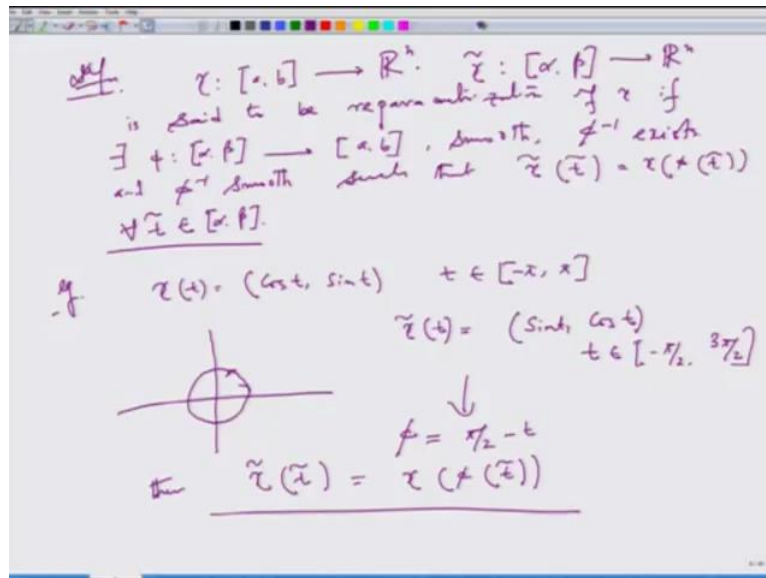 Def. γ : [a, b] → ℝⁿ. γ̃ : [α, β] → ℝⁿ
is said to be reparametrization of γ if
∃ φ : [α, β] → [a, b], smooth, φ⁻¹ exists
and φ⁻¹ smooth such that γ̃(t̃) = γ(φ(t̃))
∀ t̃ ∈ [α, β].
eg. γ(t) = (cos t, sin t) t ∈ [-π, π]
γ̃(t) = (sin t, cos t)
t ∈ [-π/2, 3π/2]
↓
φ = π/2 - t
then γ̃(t̃) = γ(φ(t̃))